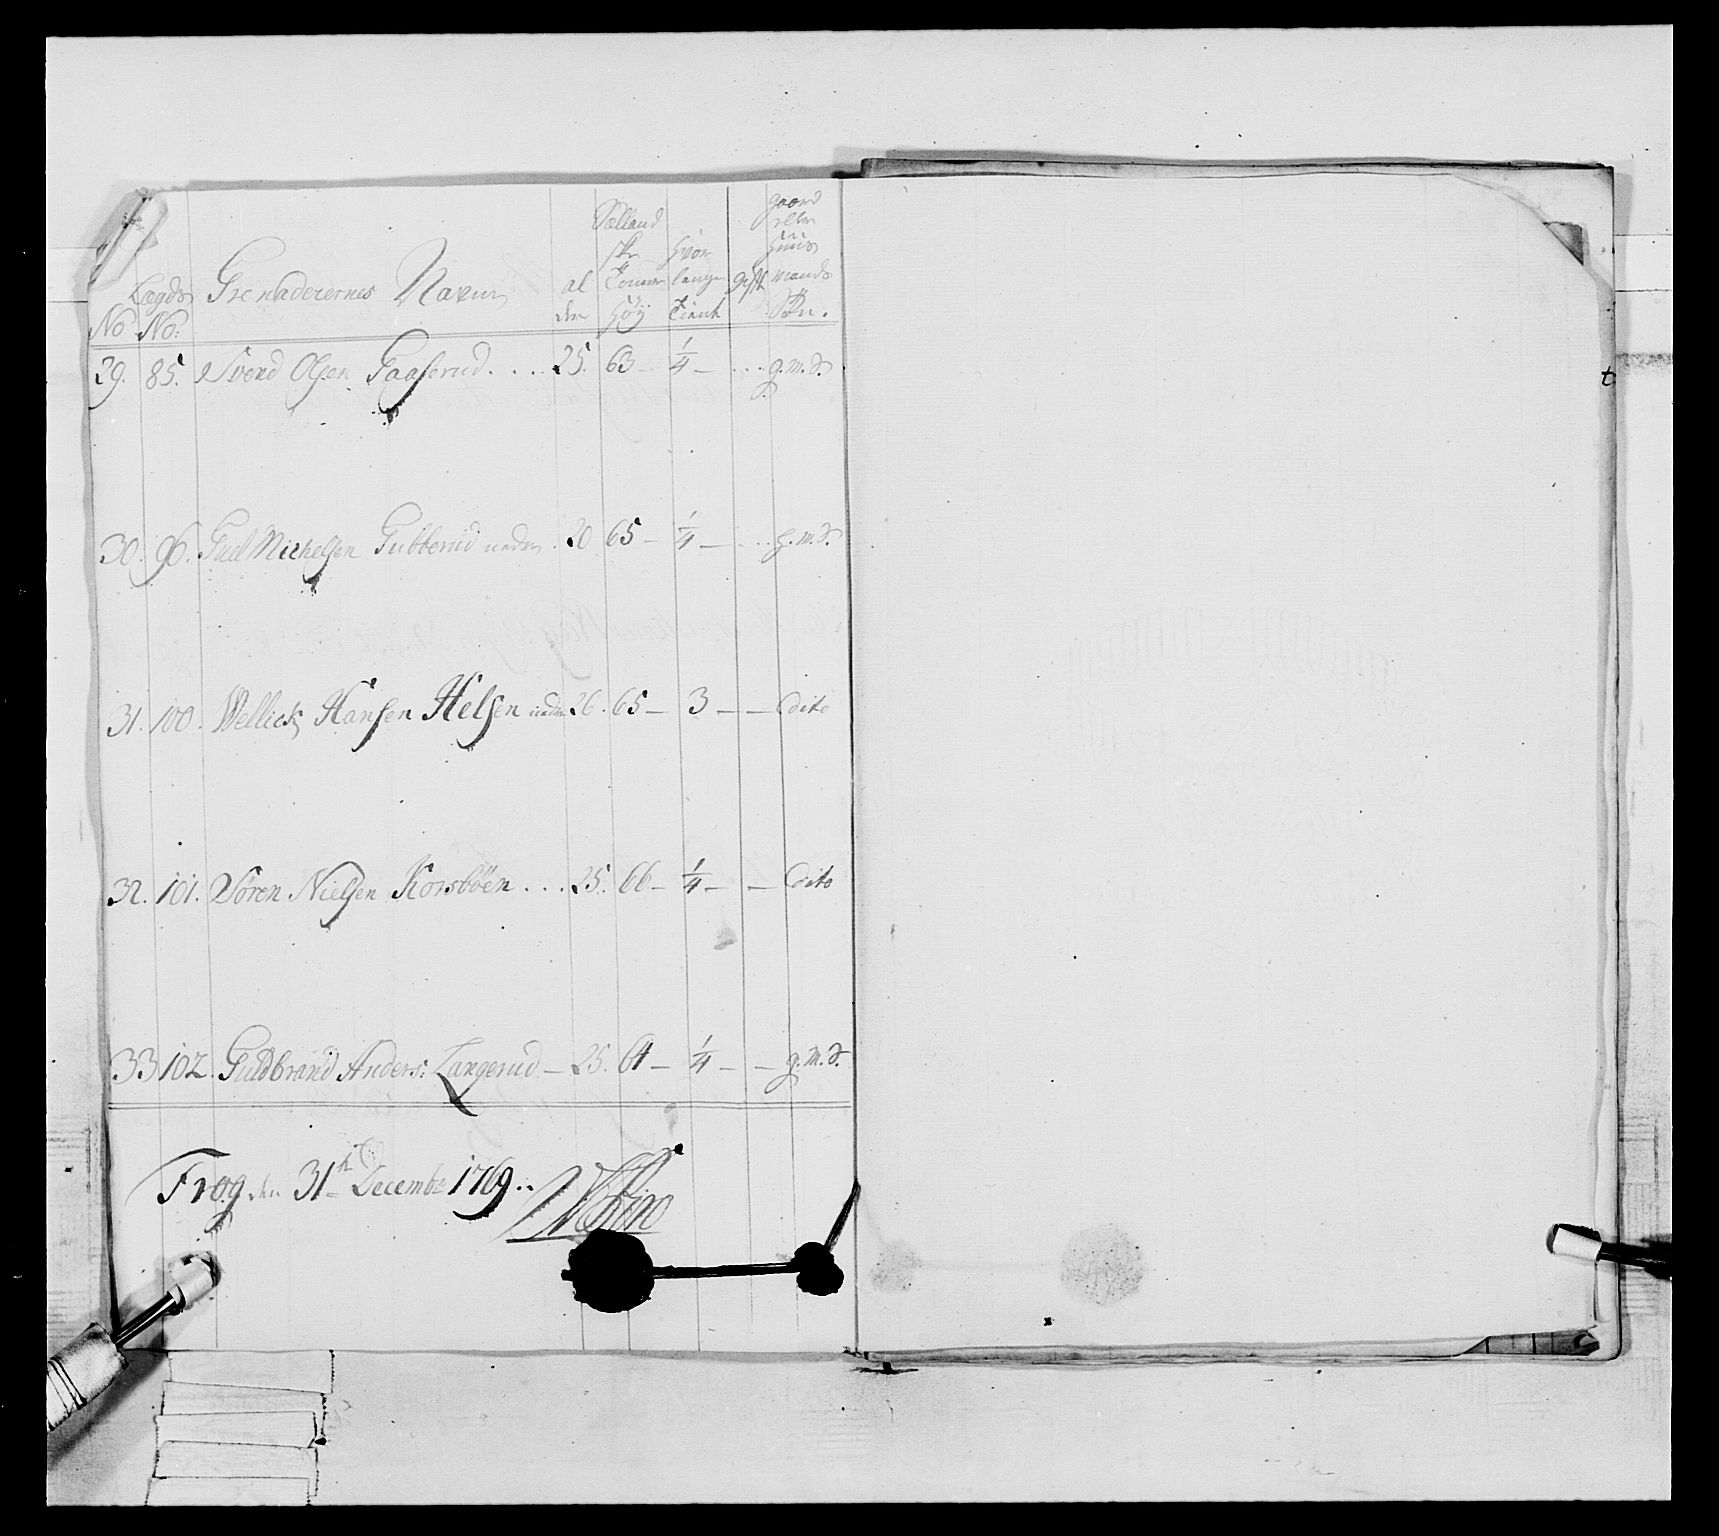 No Lægds No: Grenaderernes Navne alder Sællandske Tommer höÿ hvor lenge tient gift gaard eller huusmands Sön.
29. 85. Svend Olsen Gaaserud . . . . 25. 63 — 1/4 — . . . g. m. S.
30. 96. Michelsen Gubberud neder . 20 65 — 1/4 — . . . h. m. S.
31. 100. Wellick Hansen Helsen neder 26. 65 — 3 — — Dito
32. 101. Sören Nielsen Korsböen . . . 25. 66 — 1/4 — — Dito
33 102. Guldbrand Anders: Langerud — 25. 64 — 1/4 — — g. m. S.
Frog den 31te Decembr 1769..
t